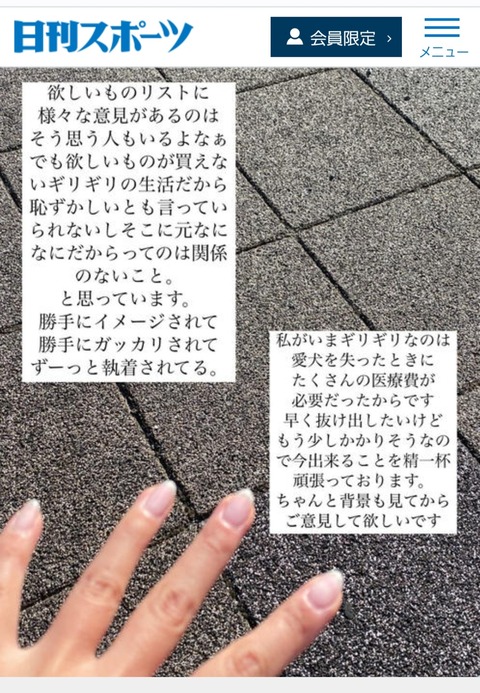 日刊スポーツ
会員限定
メニュー
欲しいものリストに
様々な意見があるのは
そう思う人もいるよなぁ
でも欲しいものが買えな
いギリギリの生活だから
恥ずかしいとも言ってい
られないしそこに元なに
なにだからってのは関係
のないこと。
と思っています。
勝手にイメージされて
勝手にガッカリされて
ずーっと執着されてる。
私がいまギリギリなのは
愛犬を失ったときに
たくさんの医療費が
必要だったからです
早く抜け出したいけど
もう少しかかりそうなの
で今出来ることを精一杯
頑張っております。
ちゃんと背景も見てから
ご意見して欲しいです